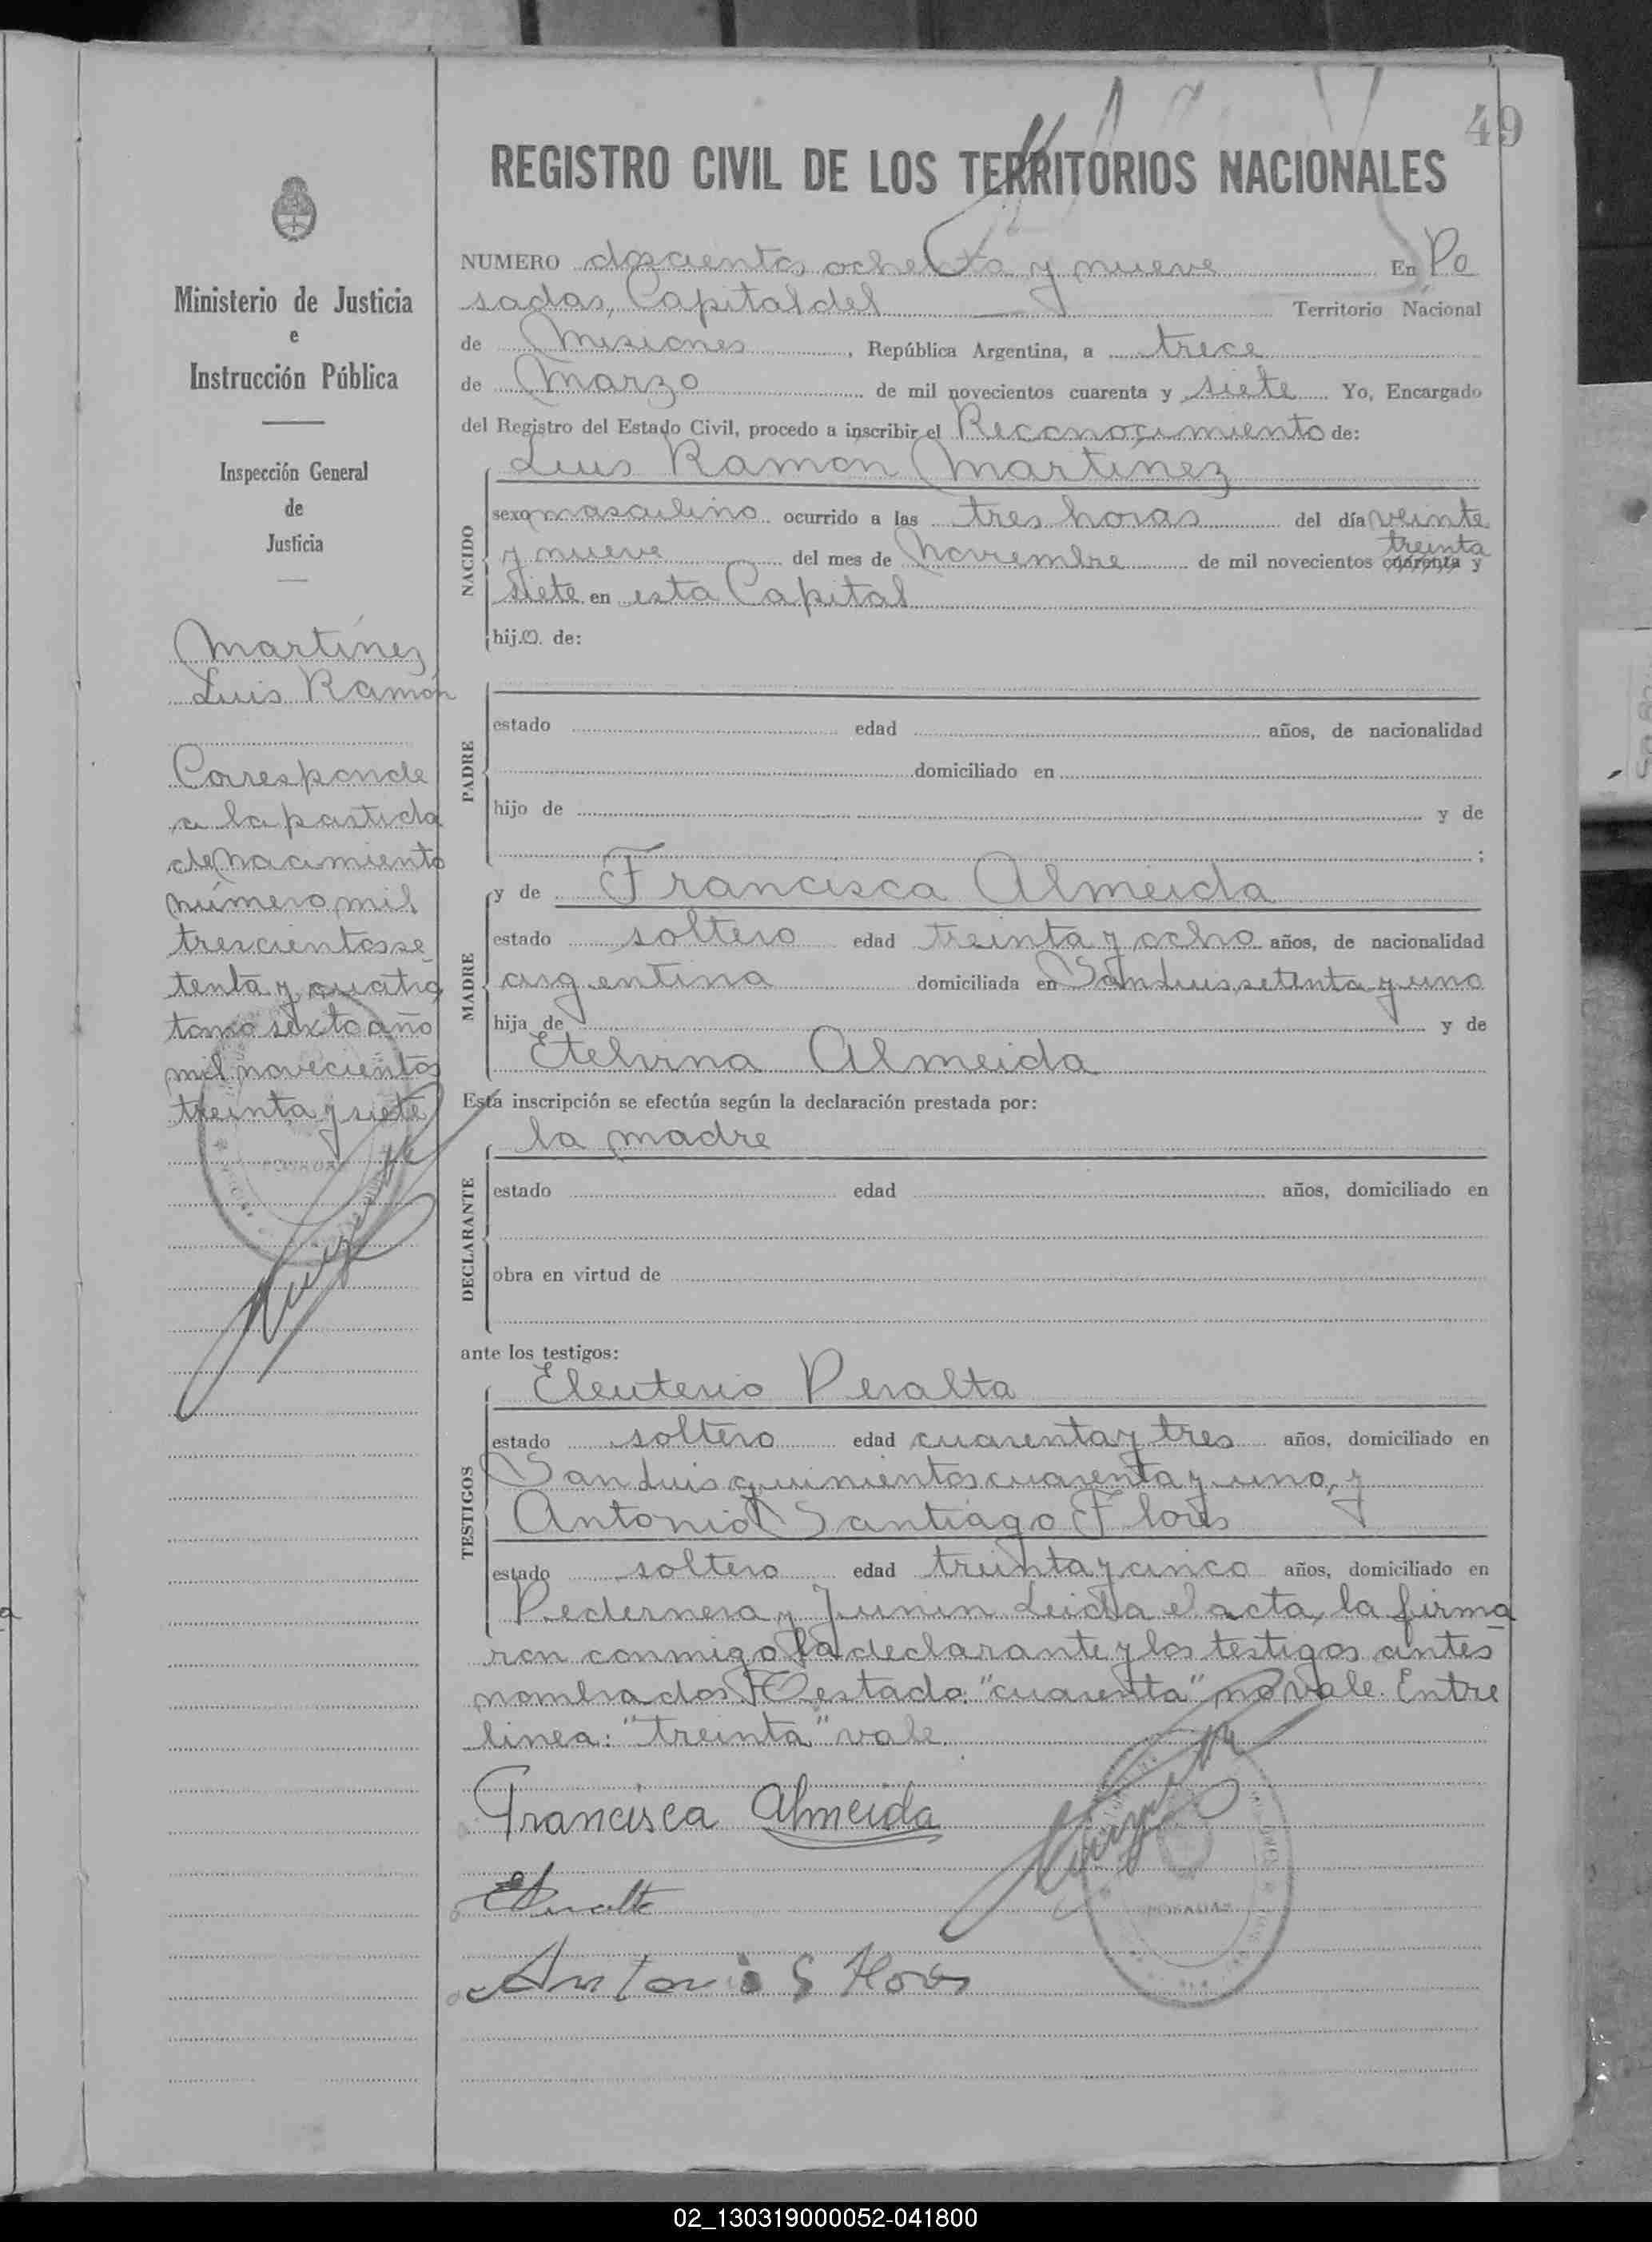 49
REGISTRO CIVIL DE LOS TERRITORIOS NACIONALES
Ministerio de Justicia
e
Instrucción Pública
Inspección General
de
Justicia
Martínez
Luis Ramón
Corresponde
a la partida
de nacimiento
número mil
trescientos se
tenta y cuatro
tomo sexto año
mil novecientos
treinta y siete
POSADAS
NUMERO doscientos ochenta y nueve En Po
sadas, Capital del Territorio Nacional
de Misiones, República Argentina, a trece
de Marzo de mil novecientos cuarenta y siete Yo, Encargado
del Registro del Estado Civil, procedo a inscribir el Reconocimiento de:
NACIDO
Luis Ramon Martínez
sexo masculino ocurrido a las tres horas del día veinte
treinta
y nueve del mes de Noviembre de mil novecientos cuarenta y
siete en esta Capital
hijo de:
PADRE
estado edad años, de nacionalidad
domiciliado en
hijo de y de
;
MADRE
y de Francisca Almeida
estado soltero edad treinta y ocho años, de nacionalidad
argentina domiciliada en San Luis, setenta y uno
hija de y de
Etelvina Almeida
Esta inscripción se efectúa según la declaración prestada por:
DECLARANTE
la madre
estado edad años, domiciliado en
obra en virtud de
ante los testigos:
TESTIGOS
Eleuterio Peralta
estado soltero edad cuarenta y tres años, domiciliado en
San Luis quinientos cuarenta y uno, y
Antonio Santiago Flores
estado soltero edad treinta y cinco años, domiciliado en
Pedernera y Junin Leida el acta, la firma
ron conmigo la declarante y los testigos antes
nombrados Testado: "cuarenta" no vale. Entre
linea: "treinta" vale.
Francisca Almeida
EPeralta
Antonio S Flores
POSADAS
02_130319000052-041800